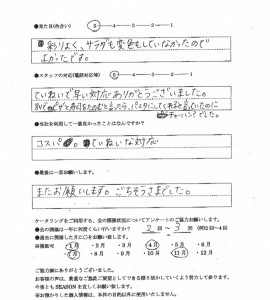 ●見た目(色合い) ⑤-4-3-2-1
彩りよく、サラダも変色もしていなかったので
よかったです。
●スタッフの対応(電話対応等) ⑤-4-3-2-1
ていねいで早い対応ありがとうございました。
チャーハンでした。
●当社を利用して一番良かったことはなんですか?
コスパ◎。ていねいな対応
●最後に一言お願いします。
またお願いします。ごちそうさまでした。
ケータリングをご利用する、会の開催状況についてアンケートのご協力お願いします。
●会の開催は一年に何度くらい行いますか? 2回~3回(例)2回~4回
●会を開催した月に〇をお願い致します。
※複数可 ・1月 ・2月 ・3月 ・4月 ・5月 ・6月
・7月 ・8月 ・9月 ・10月 ・11月 ・12月
ご協力誠にありがとうございました。
お客様の声は、貴重なご意見ご要望としてできる限り活かしていくよう努力して参ります。
今後ともSEASONを宜しくお願い致します。
お預かりした個人情報は、本件の目的以外に使用いたしません。